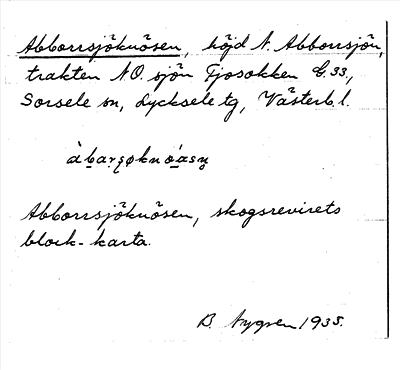 Abborrsjöknösen, höjd N. Abborrsjön,
trakten NO. sjön Tjosokken G. 33.,
Sorsele sn, Lycksele tg, Västerb. l.
àba̱rşøknòasn̥
Abborrsjöknösen, skogsrevirets
block-karta.
B. Nygren 1935.